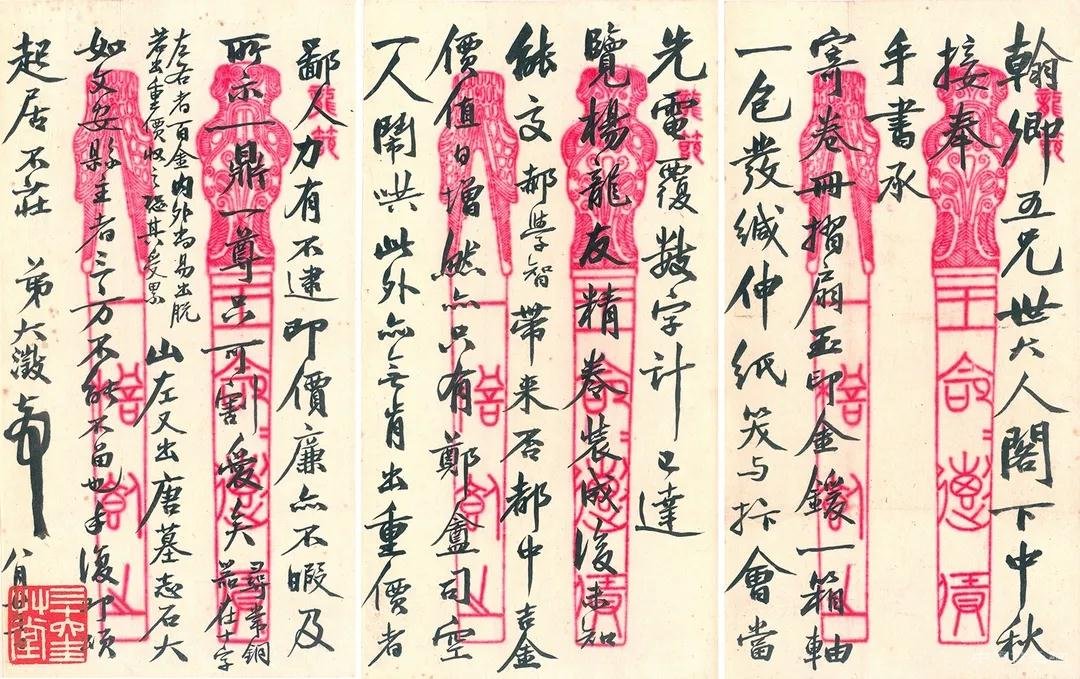 翰卿五兄世大人閣下中秋
接奉
手書承
寄卷冊摺扇玉印金鍰一箱軸
一包發緘伸紙笑与抃會當
先電覆數字計已達
覽楊龍友精卷裝成後未知
能交郝學智帶来否都中吉金
價值日增然亦只有鄭盦司空
一人鬧哄此外亦无肯出重價者
鄙人力有不逮即價廉亦不暇及
所示一鼎一尊只可割愛矣
尋常銅
器在十字
左右者百金内外尚易出脫
若出重價收之恐其受累
山左又出唐墓志石大
如文安縣主者三万不能不留也手復即頌
起居不莊 弟大澂
八月